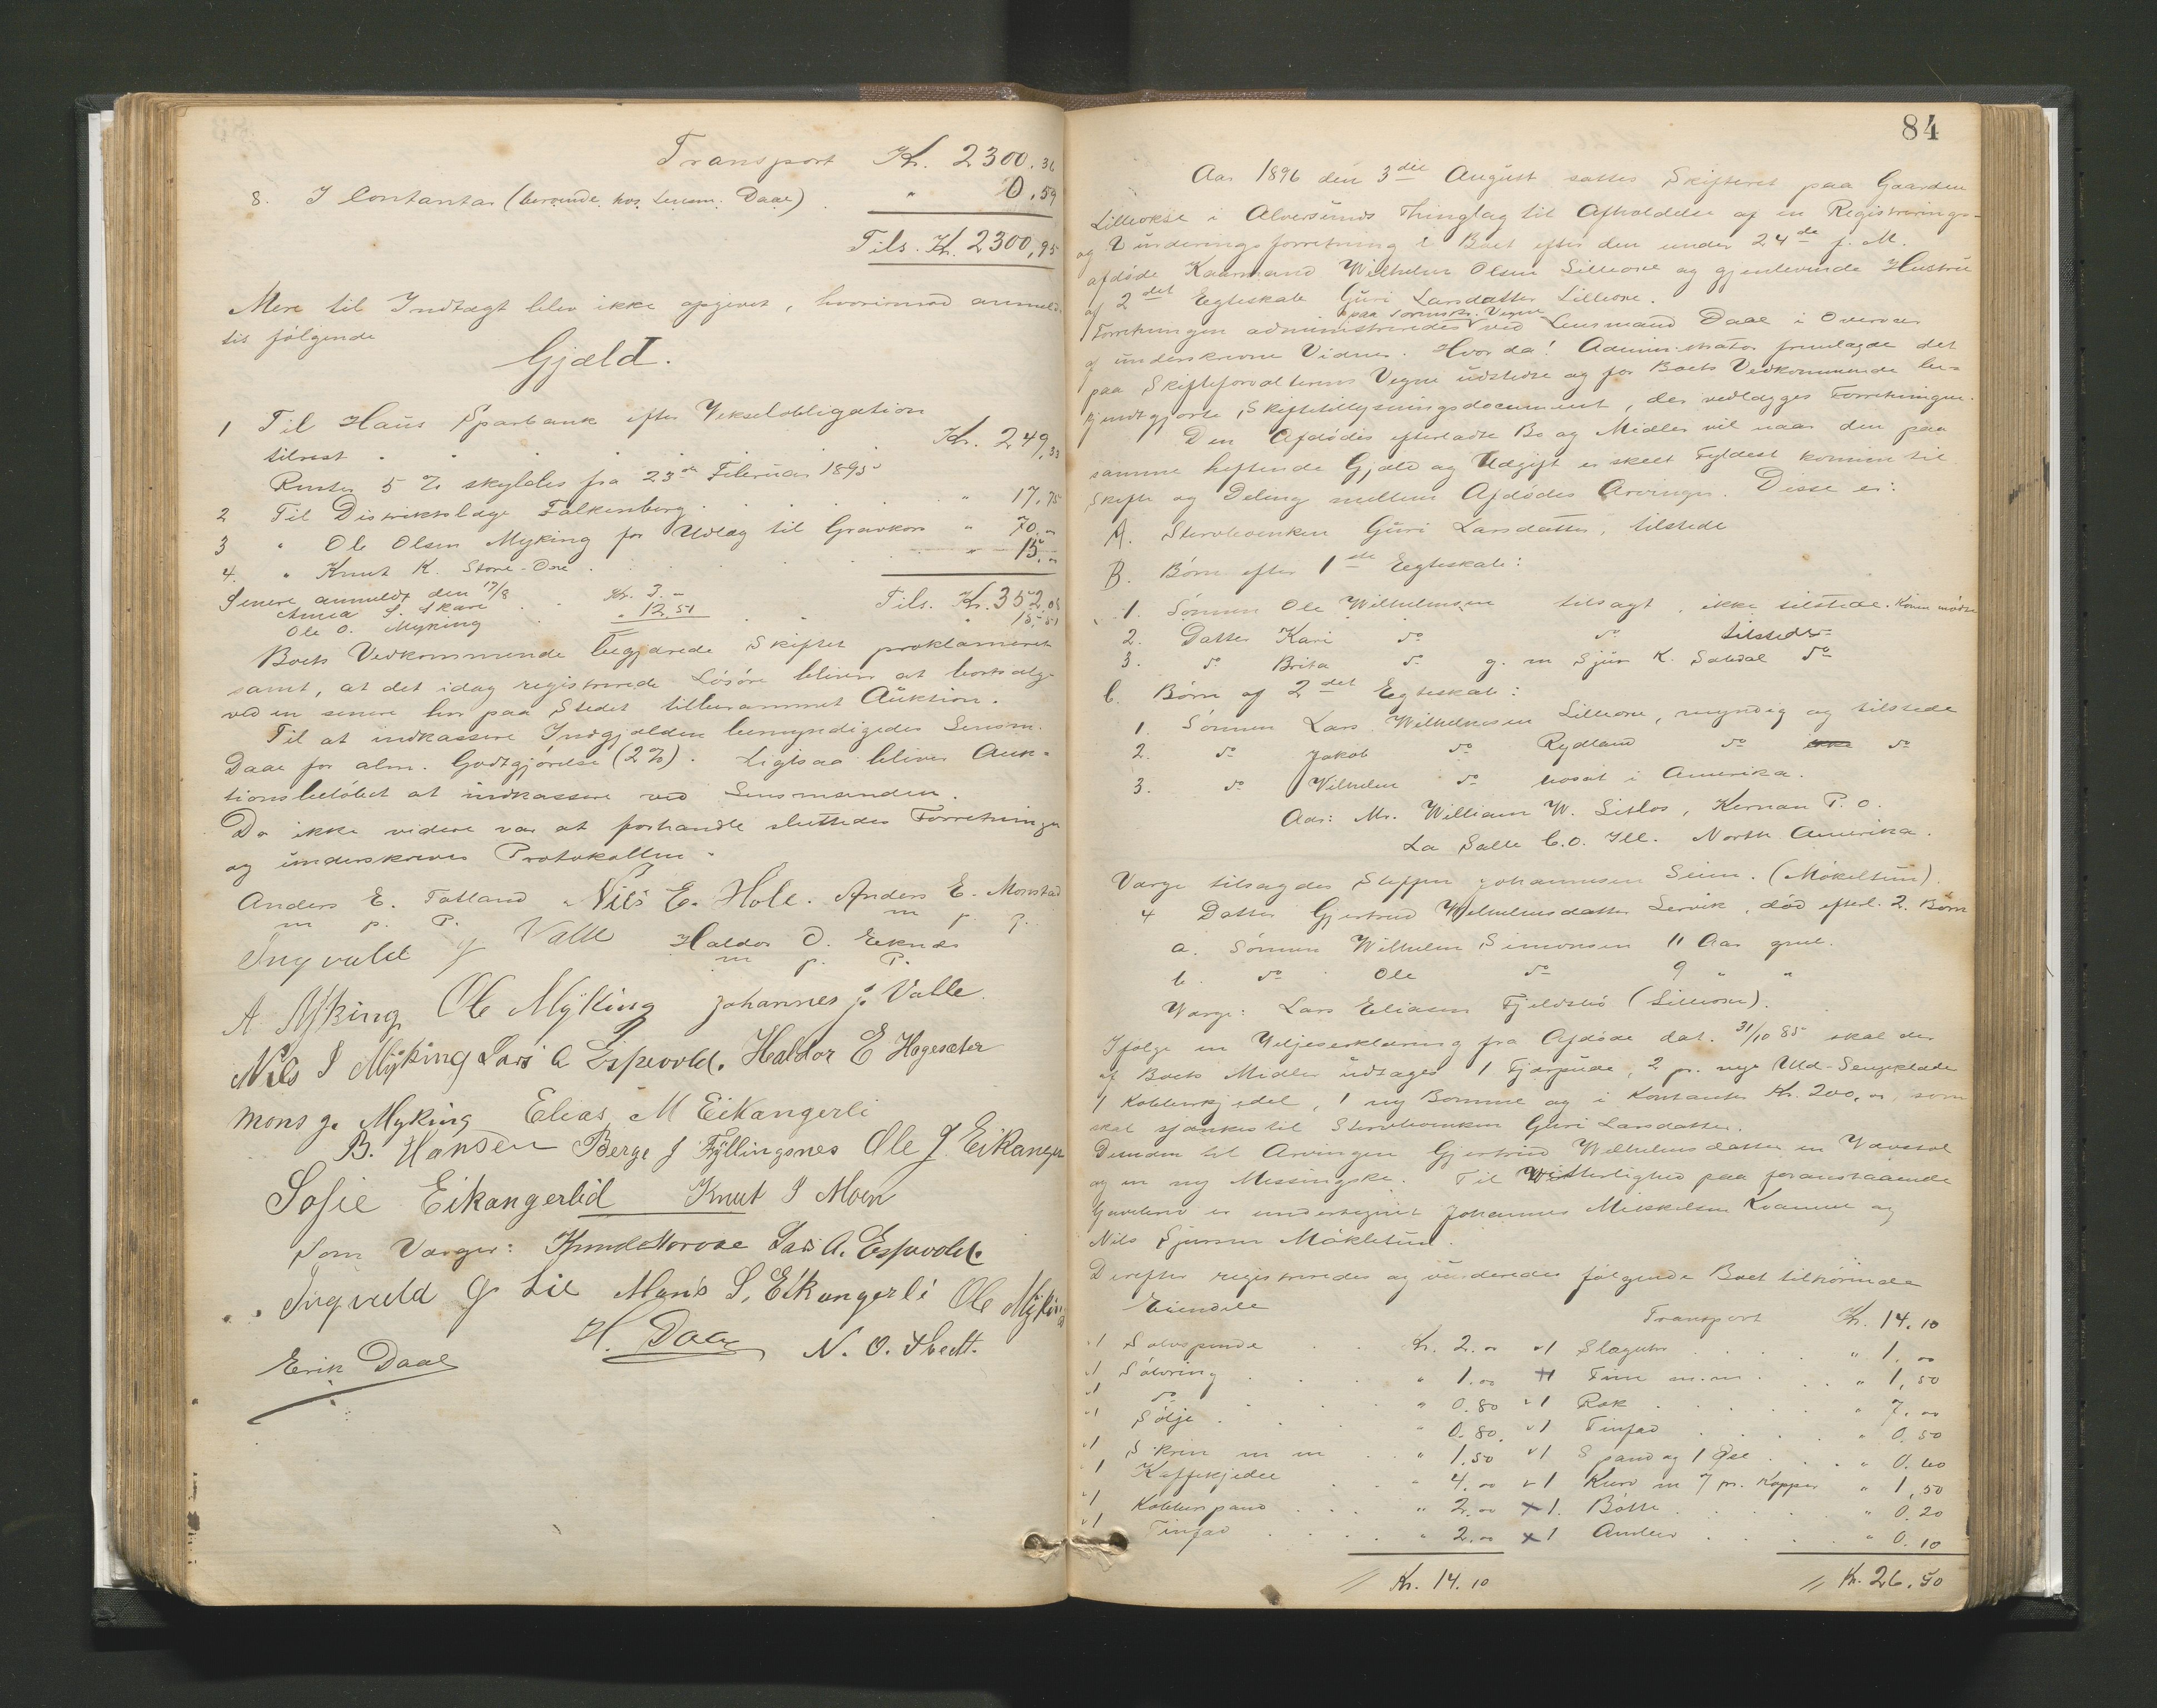 Transport Kr. 2300,36
8. I Contantar (beroende hos Lensm. Daae) . " 0,59
Tils. Kr. 2300,95
Mere til Indtægt blev ikke opgivet, hvorimod anmeld-
tes følgende
Gjæld.
1 Til Haus Sparbank efter Vekselobligation
tilrest . . . . . . Kr. 249,33
Renter 5 % skyldes fra 23de Februar 1895 " 17,75
2 Til Distriktslæge Falkenberg . . . . "
3 " Ole Olsen Myking for Udlæg til Gravkors " 70.00
4. " Knut K. Store-Ose . . . . " 15.00
Senere anmeldt den 17/8 Tils. Kr. 352.08
Anna S. Skare Kr. 3.–
Ole O. Myking " 12,51 . . " 15,51
Boets Vedkommende begjærede Skiftet proklameret
samt, at det idag registrerede Løsøre bliver at bortsælge
ved en senere her paa Stedet tilberammet Auktion.
Til at indkassere Indgjælden bemyndigedes Lensm.
Daae for alm. Godtgjørelse (2%). Ligesaa bliver Auk-
tionsbeløbet at indkassere ved Lensmanden.
Da ikke videre var at forhandle sluttedes Forretningen
og underskreves Protokollen.
Anders E. Tatland Nils E. Hole. Anders E. Monstad
m p. P. m p. P.
Ingvald J Valle Haldor O. Eknes
m p. P.
A Myking Ole Myking Johannes J. Valle.
Nils I Myking Lars A Espevold. Haldor E Hogesæter
Mons J. Myking Elias M Eikangerli
B. Hansen Berge J Fyllingsnes Ole J. Eikanger
Sofie Eikangerlid Knut I Moen
Som Værger: Lars A. Espevold.
Ingvald J Lie Mons S. Eikangerli Ole Myking
Erik Daae H. Daae N. O.
84
Aar 1896 den 3die August sattes Skifteret paa Gaarden
Lilleoxe i Alversunds Thinglag til Afholdelse af en Registrerings-
og Vurderingsforretning i Boet efter den under 24de f. M.
afdøde Kaarmand Wilhelm Olsen Lilleoxe og gjenlevende Hustru
af 2det Egteskab Guri Larsdatter Lilleoxe.
paa Sorenskr. Vegne
Forretningen administreredes ved Lensmand Daae i Overvær
af underskrevne Vidner. Hvor da! Administrator fremlagde det
paa Skifteforvalterens Vegne udstedte og for Boets Vedkommende be-
kjendtgjorte Skiftetillysningsdocument, der vedlægges Forretningen.
Den Afdødes efterladte Bo og Midler vil naar den paa
samme heftende Gjæld og Udgift er skeet Fyldest komme til
Skifte og Deling mellem Afdødes Arvinger. Disse er:
A. Stervboenken Guri Larsdatter, tilstede
B. Børn efter 1ste Egteskab:
1. Sønnen Ole Wilhelmsen tilsagt, ikke tilstede. Konen mødte
2. Datter Kari do do tilstede
3. do Brita do g. m Sjur K. Soltdal do
C. Børn af 2det Egteskab:
1. Sønnen Lars Wilhelmsen Lilleoxe, myndig og tilstede
2. do Jakob do Rydland do do
3. do Vilhelm do bosat i Amerika.
Adr: Mr. William W. Sislos, Kernan P.O.
La Salle C.O. Ill. North Amerika.
Værge tilsagdes Steffen Johannesen Seim. (Mökeltun).
4 Datter Gjertrud Wilhelmsdatter Lervik, død efterl. 2. Børn
a. Sønnen Wilhelm Simonsen 11 Aar gml.
b. do Ole do 9 " "
Værge: Lars Eliasen Fjeldsbö (Lilleoxe).
Ifølge en Viljeserklæring fra Afdøde dat. 31/10 85 skal der
af Boets Midler udtages 1 Fjærpude, 2 pr. nye Uld-Sengeklæde
1 Kobberkjedel, 1 ny Bomme og i Kontanter Kr. 200,00, som
skal skjænkes til Stervboenken Guri Larsdatter.
Desuden til Arvingen Gjertrud Wilhelmsdatter en Vævstol
og en ny Messingske. Til Vitterlighed paa foranstaaende
Gavebrev er undertegnet Johannes Mikkelsen Kvamme og
Nils Sjursen Mökletun.
Derefter registreredes og vurderedes følgende Boet tilhørende
Eiendele
Transport Kr. 14.10
1 Sølvspende . . Kr. 2.00 1 Slaguhr . . . " 1.00
1 Sølvring . . . " 1.00 1 Tine m.m. . . " 1,50
1 do . . " 0.80 1 Rok . . . . " 7.00
1 Sølje . . . " 0.80 1 Tinfad . . . . " 0.50
1 Skrin m m . . " 1.50 1 Spand og 1 Øse . . . " 0.60
1 Kaffekjedel . . " 4.00 1 Kurv m 7 pr. Kopper " 1,50
1 Kobberspand . . . " 2.00 1. Bøtte . . . . " 0.20
1 Tinfad . . . . " 2.00 1 Ambar . . . " 0.10
Kr. 14.10 Kr. 26.50